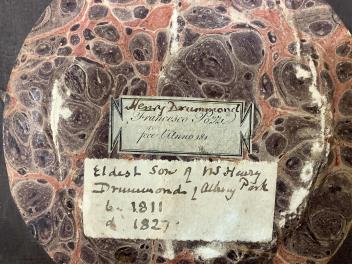 Henry Drummond
Francesco Pozzi
fece l'Anno 181
Eldest Son of Henry
Drummond of Albury Park
b. 1811
d. 1827.